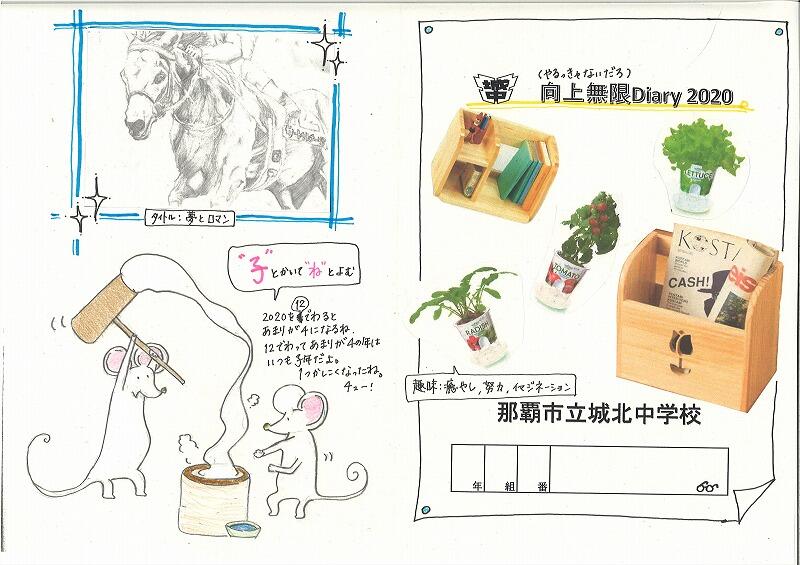 タイトル:夢とロマン
"子"とかいて"ね"とよむ
12
2020を でわると
あまりが4になるね.
12でわってあまりが4の年は
いつも子年だよ。
1つかしこくなったね。
チュー!
(やるっきゃないだろ)
向上無限Diary 2020
LETTUCE
TOMATO
RADISH
KOST/
CASH!
eis
趣味:癒やし,努力,イマジネーション
那覇市立城北中学校
年 組 番